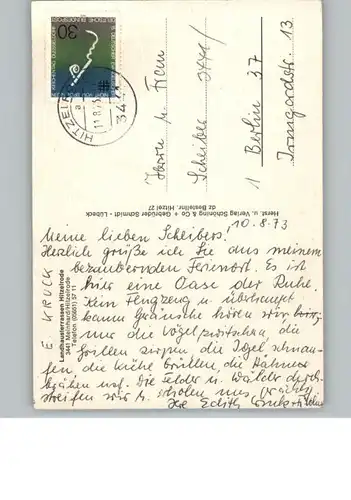 30
DEUTSCHE BUNDESPOST
HITZELRODE
a
11.8.73
344
Herrn u. Frau
Scheiber
1 Berlin 37
Irmgardstr. 13
Herst. u. Verlag Schöning & Co + Gebrüder Schmidt · Lübeck
dz Bestellnr. Hitzel 27
E KRUCK
Landhausterrassen Hitzelrode
3441 Meinhard/Hitzelrode
Telefon (05651) 57 11
10.8.73
Meine lieben Scheibers!
Herzlich grüße ich Sie aus meinem
bezaubernden Ferienort. Es ist
hier eine Oase der Ruhe.
Kein Flugzeug u. überhaupt
kaum Geräusche hören wir
nur die Vögel zwitschern, die
Grillen zirpen die Igel schnau-
fen, die Kühe brüllen, die Hähne
krähen usf. Die Felder u. Wälder durch-
streifen wir u. erholen uns
Ihre Edith